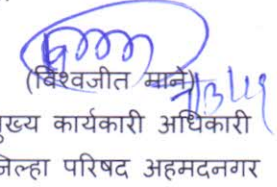 (विश्वजीत माने)
ुख्य कार्यकारी अधिकारी
जिल्हा परिषद अहमदनगर